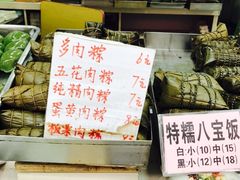 多肉粽 6元
五花肉粽 7元
纯精肉粽 7元
蛋黄肉粽
板栗肉粽
特糯八宝饭
白:小(10)中(15)
黑:小(12)中(18)